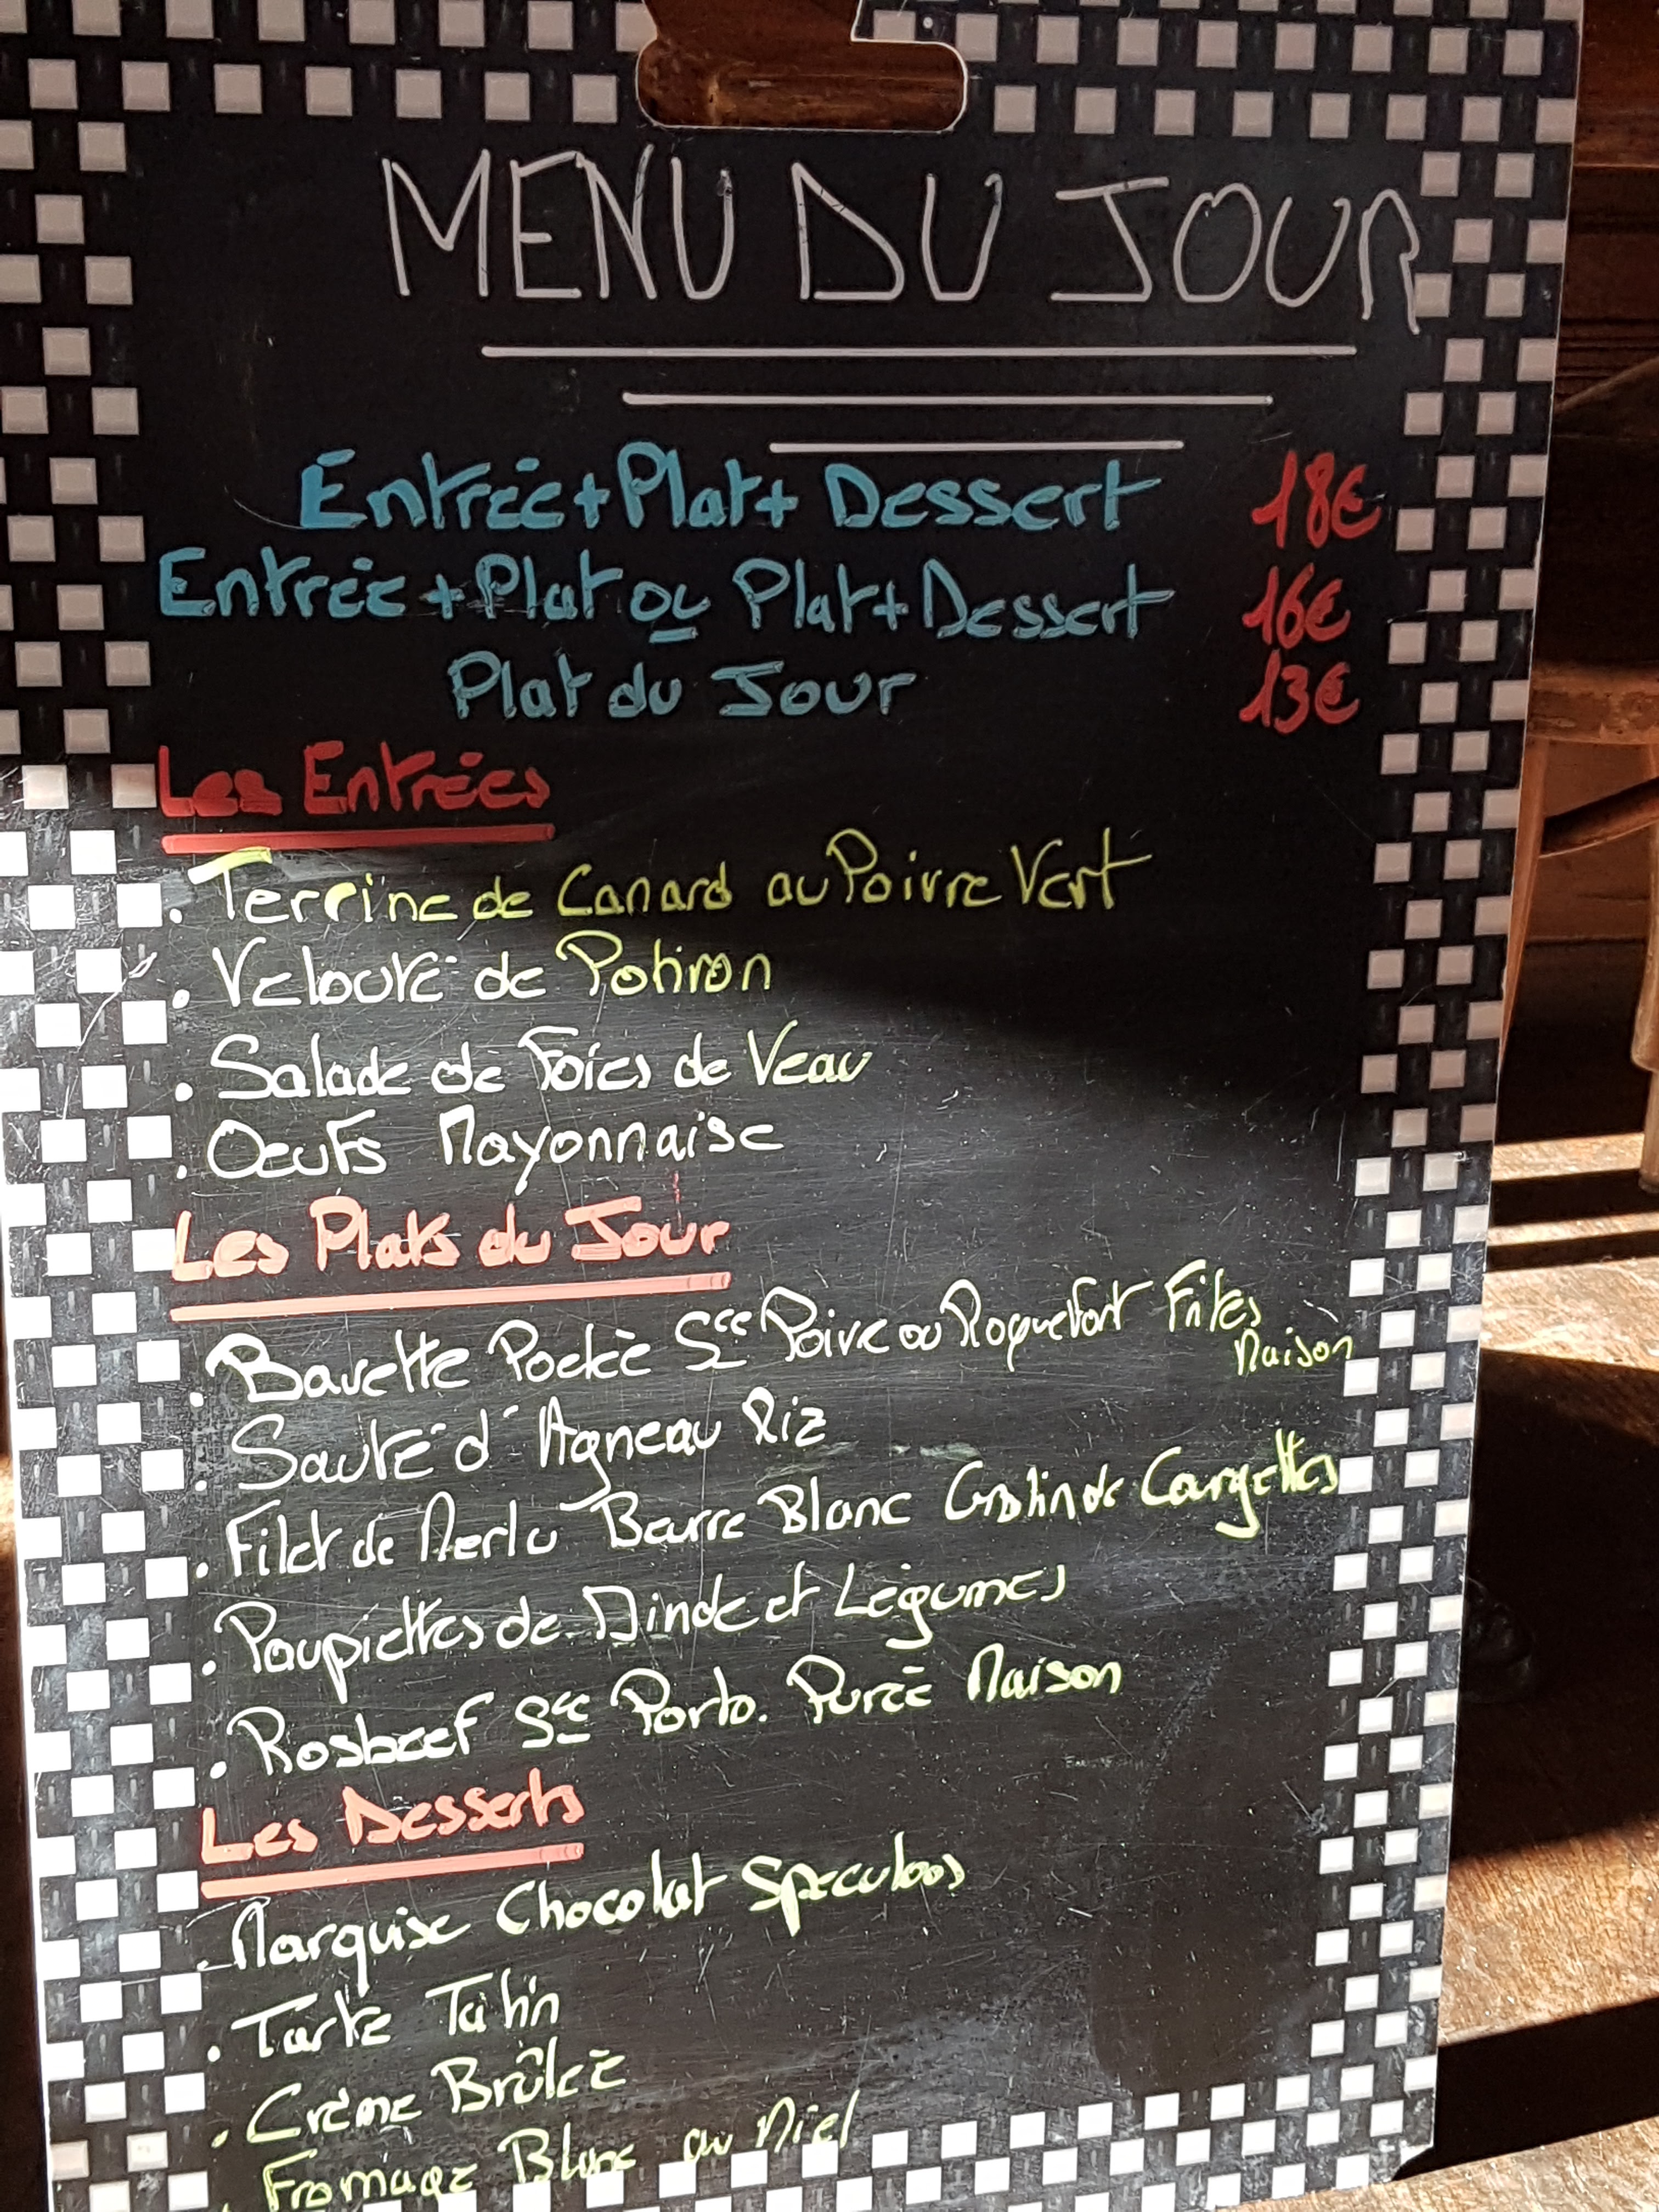 MENU DU JOUR
Entrée+Plat+Dessert 18€
Entrée+Plat ou Plat+Dessert 16€
Plat du Jour 13€
Les Entrées
. Terrine de Canard au Poivre Vert
. Velouté de Potiron
. Salade de Foies de Veau
. Oeufs Mayonnaise
Les Plats du Jour
. Bavette Poelée Sce Poivre ou Roquefort Frites
Maison
. Sauté d'Agneau Riz
. Filet de Merlu Beurre Blanc Gratin de Courgettes
. Paupiettes de Dinde et Légumes
. Rosbeef Sce Porto. Purée Maison
Les Desserts
. Marquise Chocolat Speculoos
. Tarte Tatin
. Crème Brûlée
. Fromage Blanc au Miel